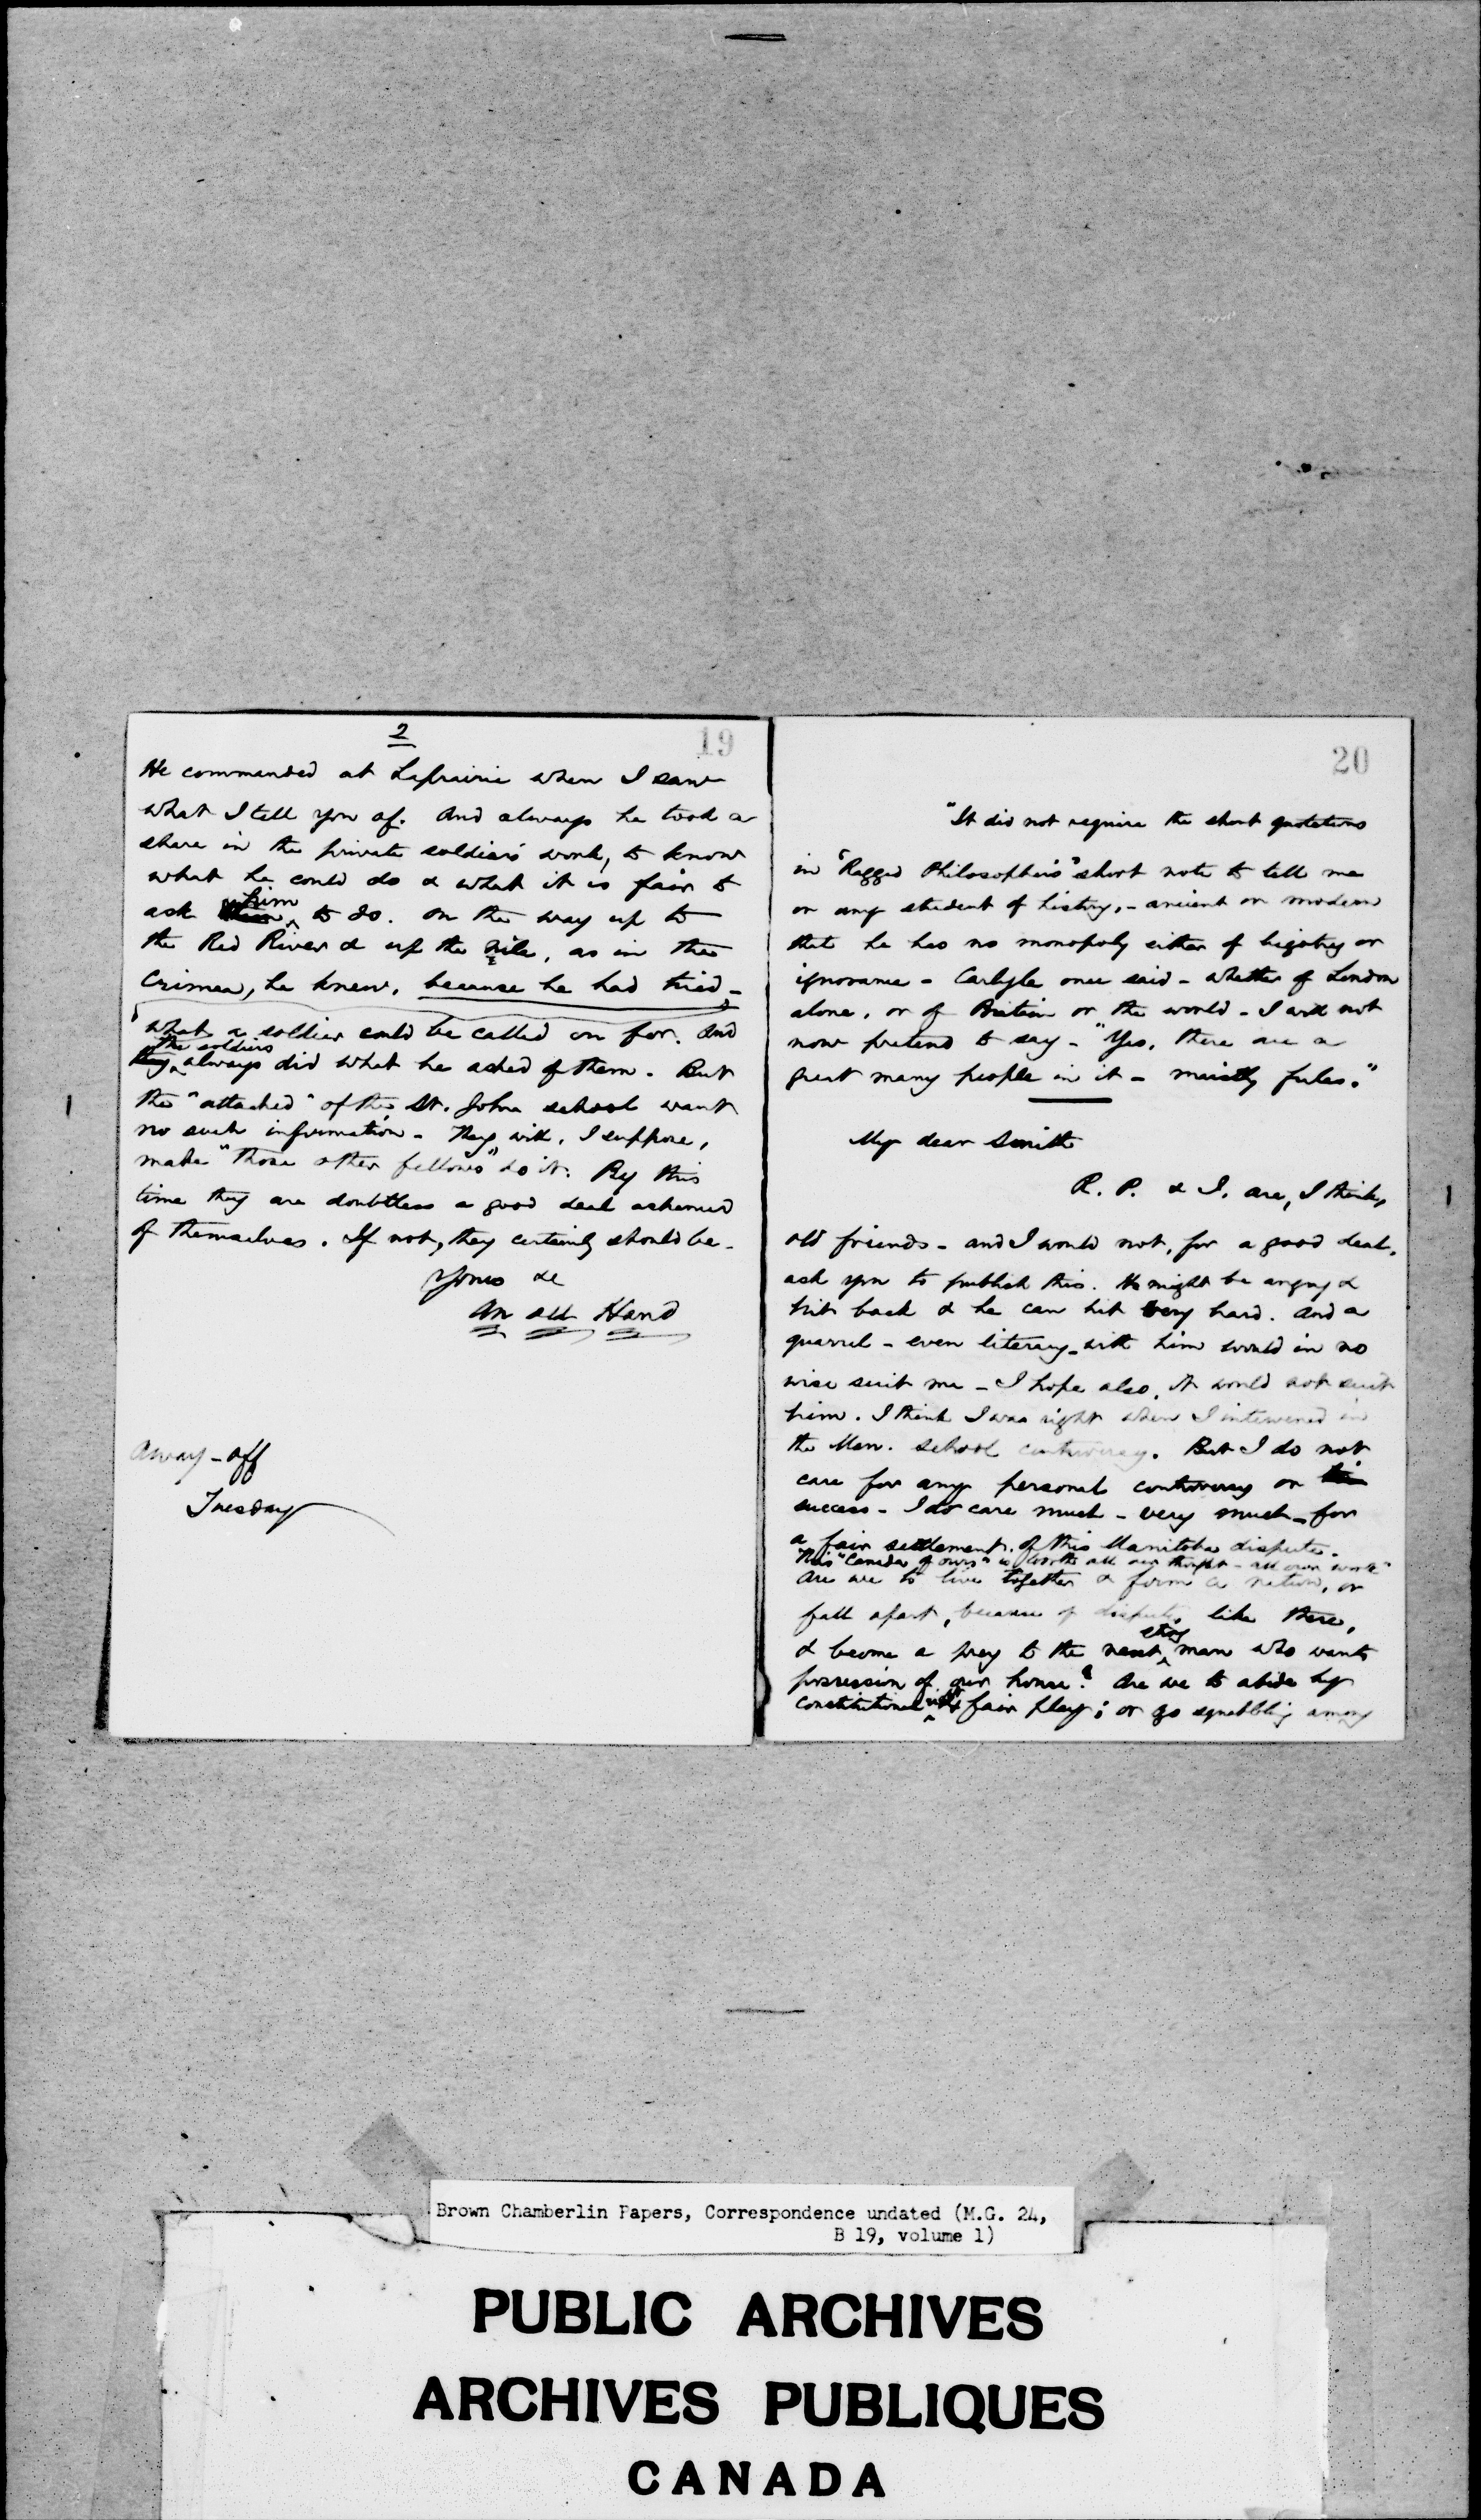 2
19
He commanded at Laprairie when I saw
what I tell you of. And always he took a
share in the private soldiers' work, to know
what he could do & what it is fair to
ask him to do. On the way up to
the Red River & up the Nile, as in the
Crimea, he knew, because he had tried –
what a soldier could be called on for. And
they the soldiers always did what he asked of them. But
the "attached" of the St. Johns school want
no such information – They will, I suppose,
make "those other fellows" do it. By this
time they are doubtless a good deal ashamed
of themselves. If not, they certainly should be –
Yours &c
An old Hand
Away-off
Tuesday
20
"It did not require the short quotations
in "Ragged Philosopher's" short note to tell me
or any student of history, – ancient or modern
that he has no monopoly either of bigotry or
ignorance – Carlyle once said – whether of London
alone, or of Britain or the world – I will not
now pretend to say – "Yes, there are a
great many people in it – maistly fules."
My dear Smith
R. P. & I. are, I think,
old friends – and I would not, for a good deal,
ask you to publish this. He might be angry &
hit back & he can hit very hard. And a
quarrel – even literary – with him would in no
wise suit me – I hope also, it would not suit
him. I think I was right when I intervened in
the Man. school controversy. But I do not
care for any personal controversy or
success – I do care much – very much – for
a fair settlement of this Manitoba dispute.
This "Canada of ours" is worth all our thought – all our work"
Are we to live together & form a nation, or
fall apart, because of disputes like these,
& become a prey to the next strong man who wants
possession of our house? Are we to abide by
constitutional fair play; or go squabbling among
Brown Chamberlin Papers, Correspondence undated (M.G. 24,
B 19, volume 1)
PUBLIC ARCHIVES
ARCHIVES PUBLIQUES
CANADA